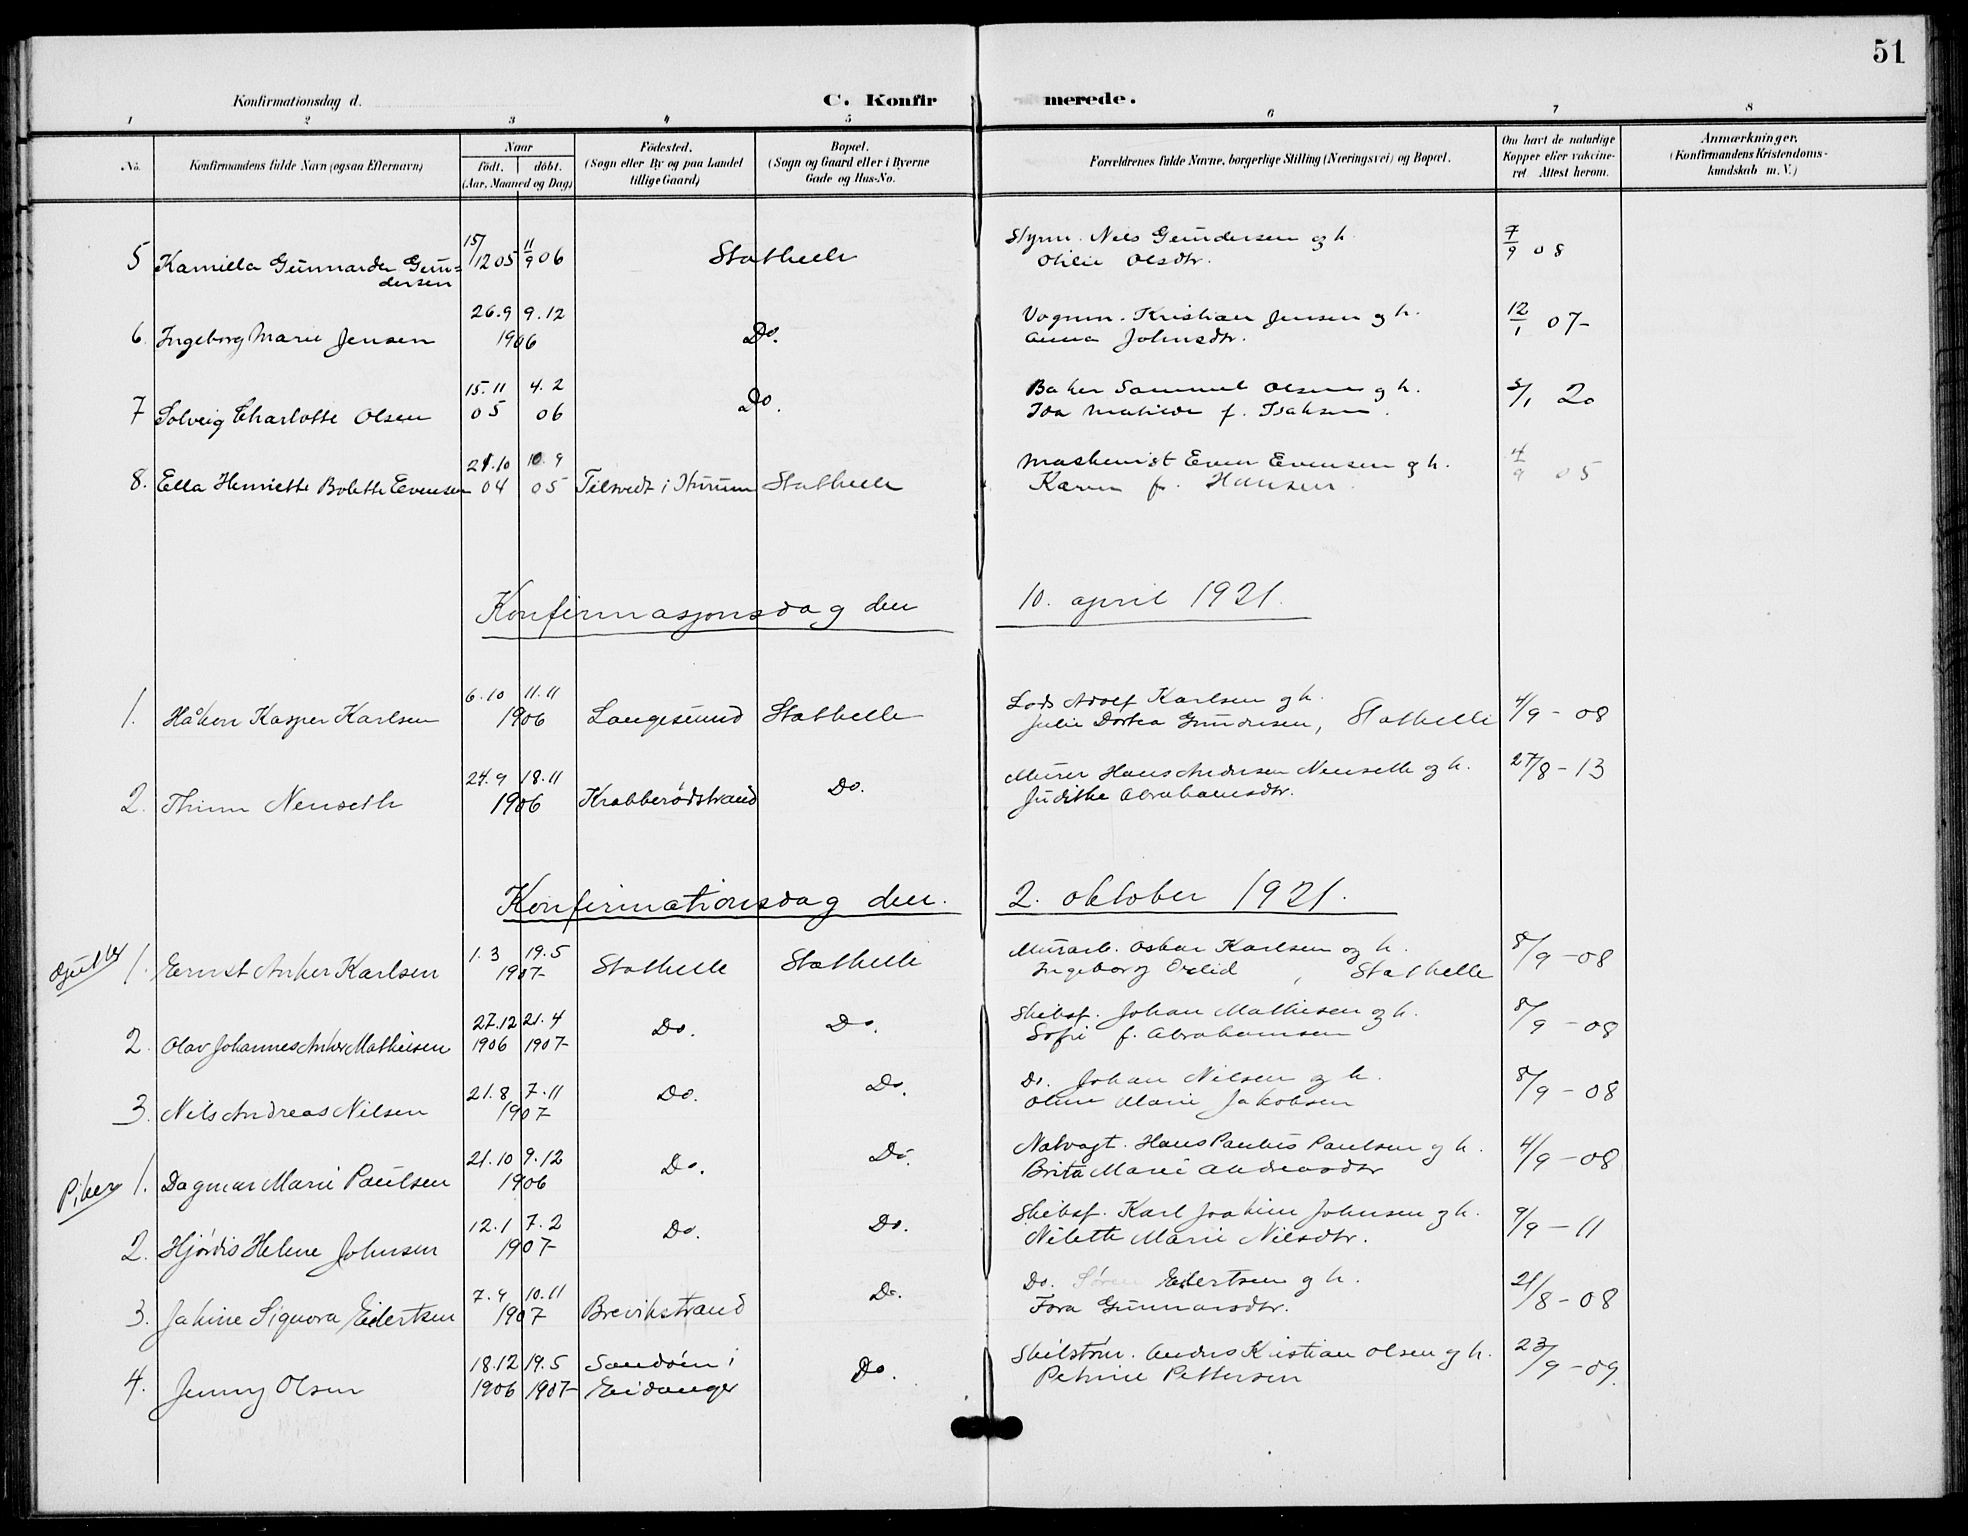 51
Konfirmationsdag d.
C. Konfirmerede.
1 2 3 4 5 6 7 8
No.
Konfirmandens fulde Navn (ogsaa Efternavn)
Naar
født. døbt.
(Aar, Maaned og Dag)
Fødested.
(Sogn eller By og paa Landet
tillige Gaard)
Bopæl.
(Sogn og Gaard eller i Byerne
Gade og Hus-No.
Forældrenes fulde Navne, borgerlige Stilling (Næringsvei) og Bopæl.
Om havt de naturlige
Kopper eller vakcine-
ret Attest herom.
Anmærkninger.
(Konfirmandens Kristendoms-
kundskab m. V.)
5 Kamilla Gunnarda Gun= 15/12 05 11/9 06 Stathelle Styrm. Nils Gundersen og h. 7/9 08
dersen Otilie Olsdtr.
26.9 9.12 Vognm. Kristian Jensen og h. 12/1 07
6. Ingeborg Marie Jensen 1906 Do. Anna Johnsdtr.
15.11 4.2 Baker Samuel Olsen og h.
7 Solveig Charlotte Olsen 05 06 Do. Ida Matilde f. Isaksen. 5/1 20
21.10 10.9 Maskinist Even Evensen og h. 4/9 05
8. Ella Henriette Bolette Evensen 04 05 i Hurum Stathelle Karen f. Hansen.
Konfirmasjonsdag den 10. april 1921.
6.10 11.11 Lods Adolf Karlsen og h.
1. Håkon Kasper Karlsen 1906 Langesund Stathelle Julie Dortea Gundersen, Stathelle 4/9 - 08
24.9 18.11 Murer Hans Andersen Nenseth og h. 27/8 - 13
2. Thinn Nenseth 1906 Krabberødstrand Do. Judithe Abrahamsdtr.
Konfirmationsdag den. 2. oktober 1921.
1.3 19.5 Murarb. Oskar Karlsen og h. 8/9 - 08
1. Ernst Anker Karlsen 1907 Stathelle Stathelle Ingeborg , Stathelle
27.12 21.4 Skibsf. Johan Mathisen og h. 8/9 - 08
2. Olav Johannes Anker Mathisen 1906 1907 Do. Do. Sofie f. Abrahamsen
21.8 7.11 Do. Johan Nilsen og h. 8/9 - 08
3. Nils Andreas Nilsen 1907 Do. Do. Marie Jakobsen
Piker 21.10 9.12 Natvagt. Hans Paulus Paulsen og h. 4/9 - 08
1. Dagmar Marie Paulsen 1906 Do. Do. Brita Marie Andreasdtr
12.1 7.2 Skibsf. Karl Joakim Johnsen og h. 9/9 - 11
2. Hjørdis Helene Johnsen 1907 Do. Do. Nilette Marie Nilsdtr.
7.9 10.11 Do. Søren Eilertsen og h. 21/8 - 08
3. Jakine Signora Eilertsen 1907 Brevikstrand Do. Tora Gunnarsdtr.
18.12 19.5 Sandøen i Skibstøm. Anders Kristian Olsen og h. 23/9 - 09.
4. Jenny Olsen 1906 1907 Eidanger Do. Petrine Pettersen